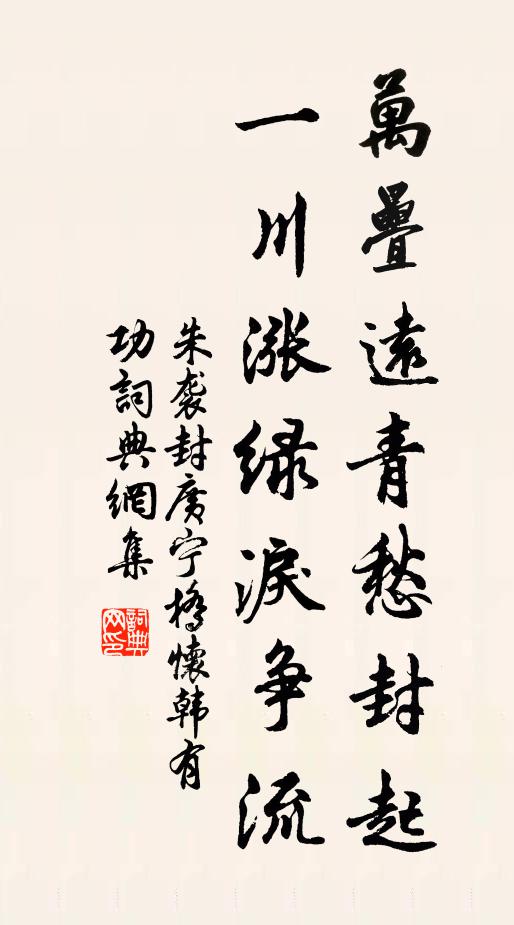 萬疊遠青愁封起
一川漲綠淚爭流
朱袭封廣宁橋懷韩有
功詞典網集
詞典
网印